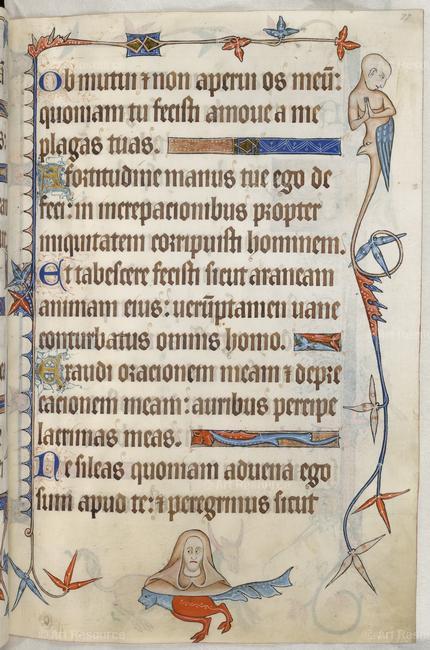 Obmutui ⁊ non aperui os meū:
quoniam tu fecisti amoue a me
plagas tuas.
A fortitudine manus tue ego de
feci: in increpacionibus propter
iniquitatem corripuisti hominem.
Et tabescere fecisti sicut araneam
animam eius: uerūptamen uane
conturbatus omnis homo.
Exaudi oracionem meam ⁊ depre
cacionem meam: auribus percipe
lacrimas meas.
Ne sileas quoniam aduena ego
sum apud te: ⁊ peregrinus sicut
© Art Resource